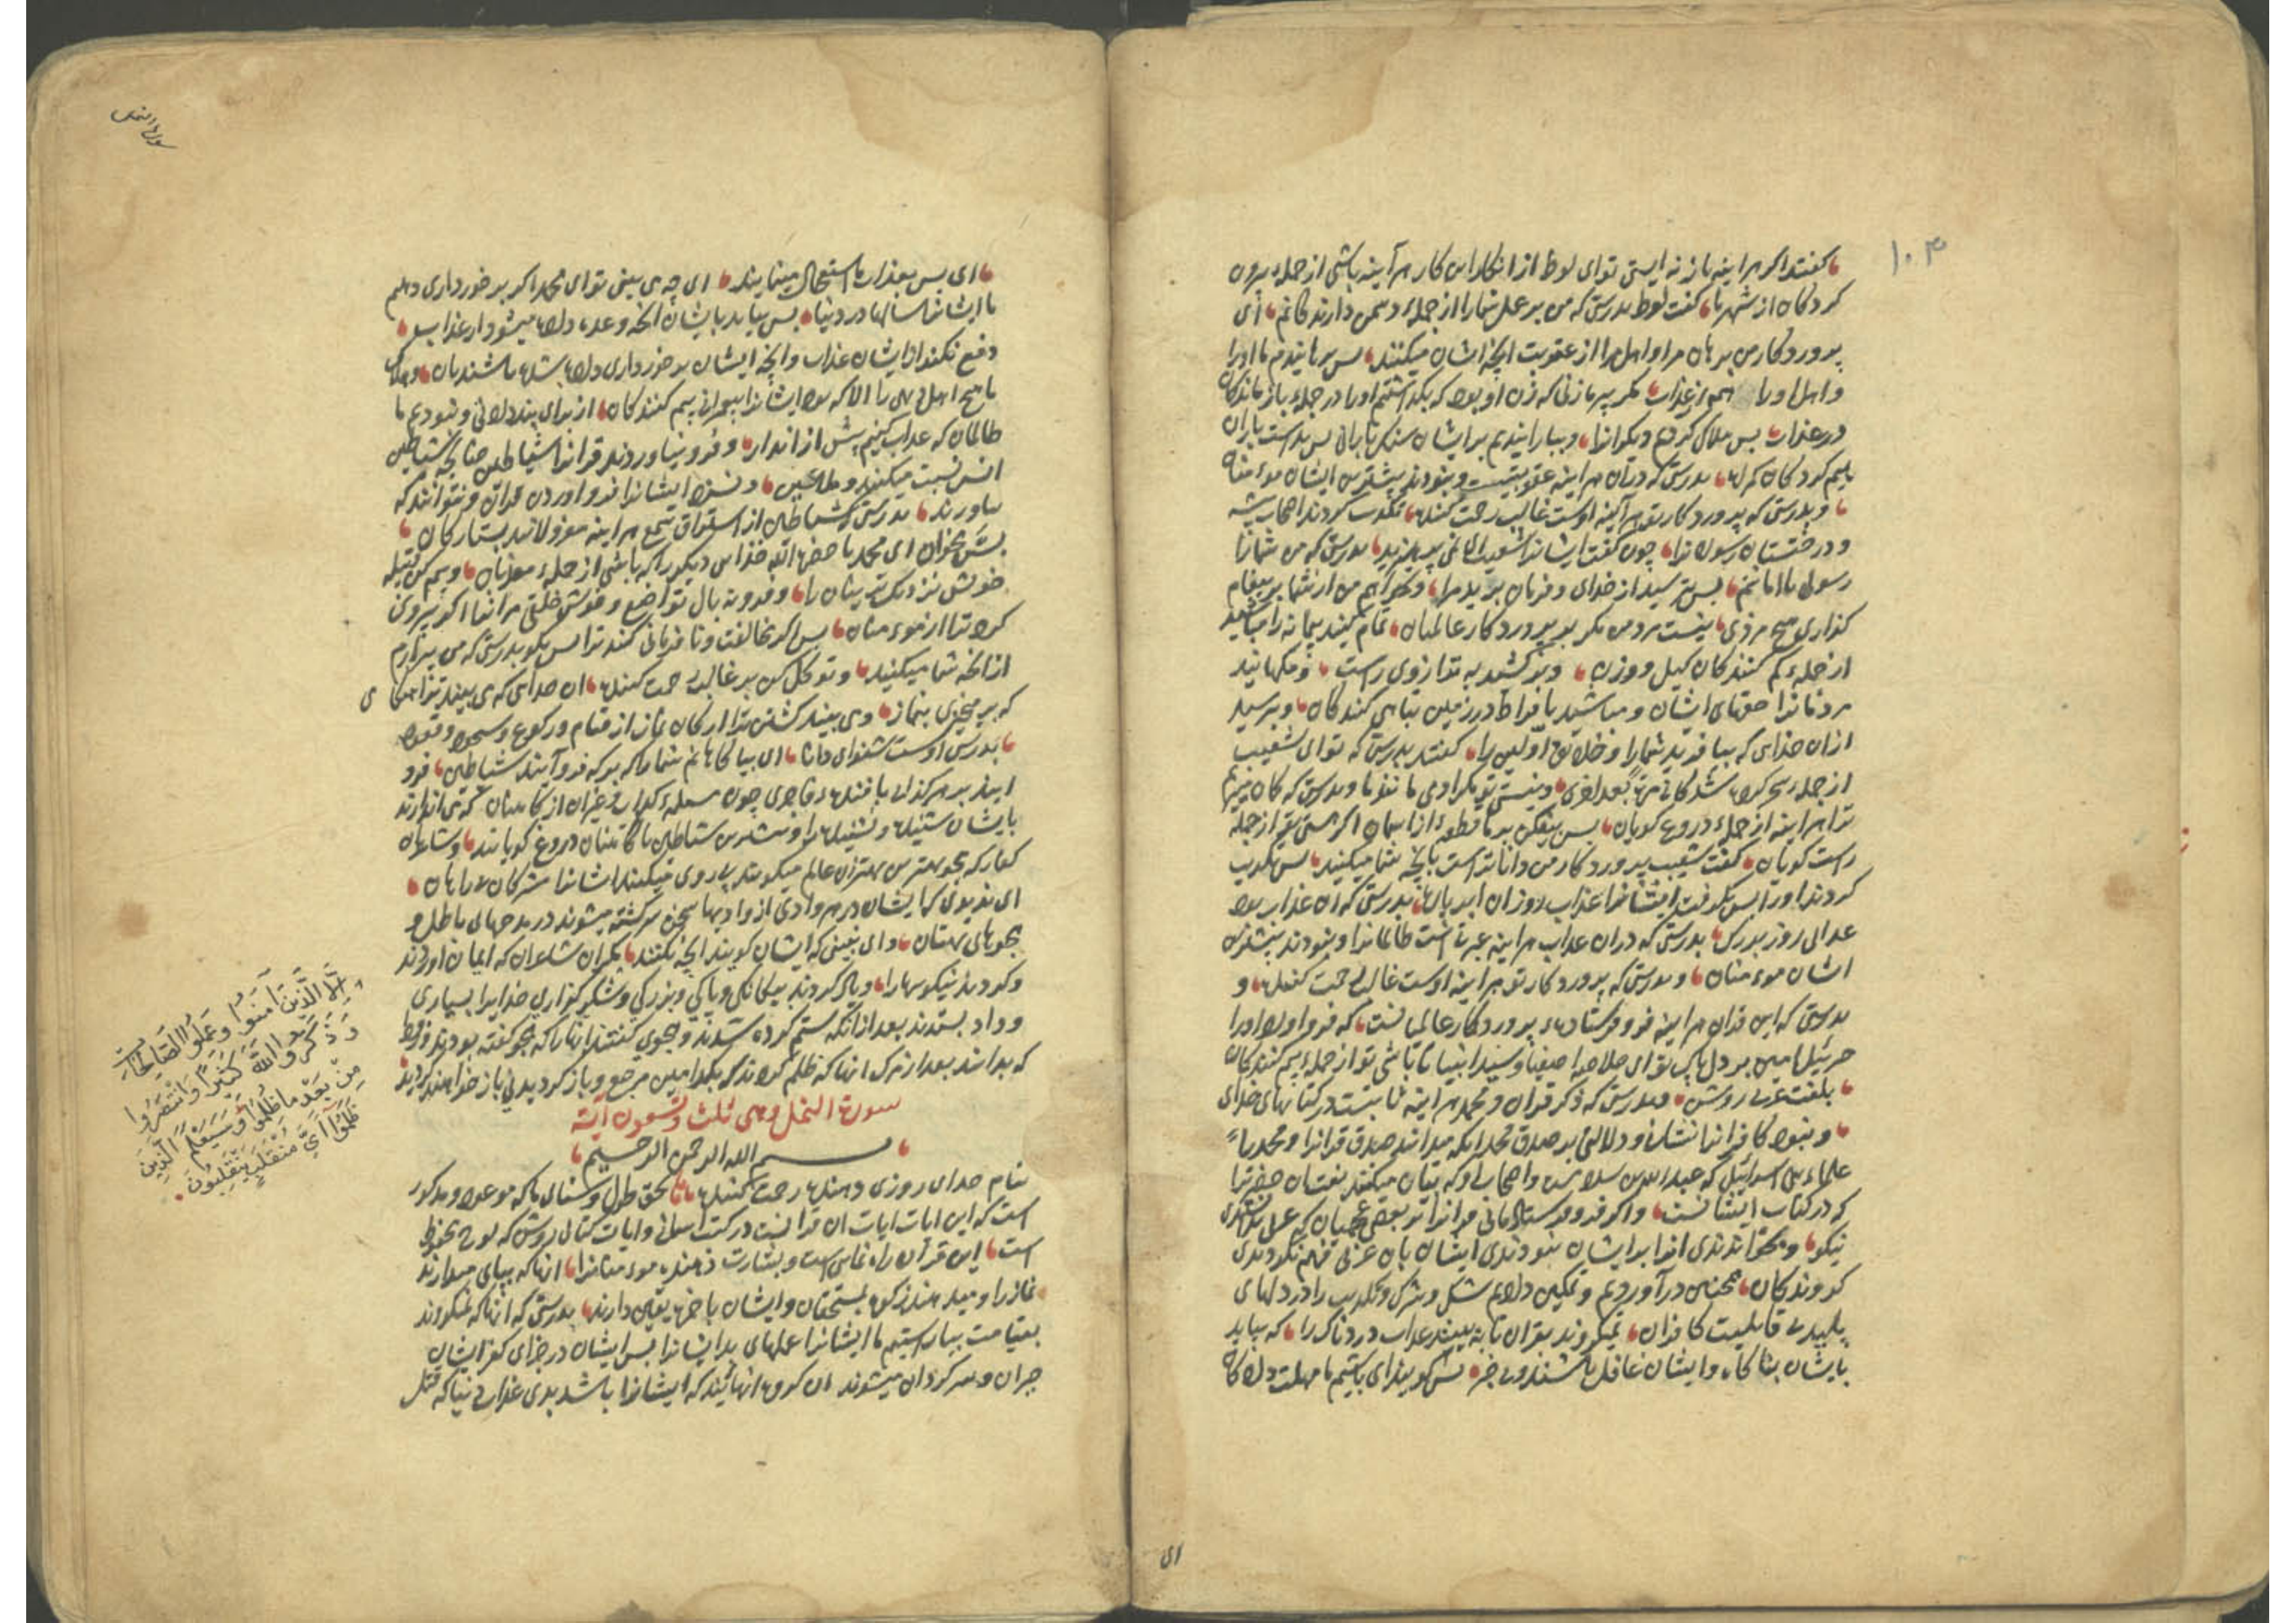 ۱۰۳
کفتند اکر هراینه باز نه ایستی توای لوط از انکار این کار هرآینه باشی از جمله بیرون
کردکان از شهر ما کفت لوط بدرستی که من بر عمل شما را از جملهٔ دشمن دارندکانم ای
پروردکار من برهان مرا و اهل مرا از عقوبت انچه ایشان میکنند پس برهانیدم ما اورا
و اهل اورا همه از عذاب مکر پیرهزنی که زن او بود که بکذاشتم اورا در جملهٔ بازماندکان
در عذاب پس هلاک کردیم دیکرانرا و ببارانیدیم بر ایشان سنک بارانی پس بد است باران
بیم کردکان کمراه بدرستی که در آن هراینه عقوبتیست و نبودند بیشترین ایشان موءمنان
و بدرستی که پروردکار تو هرآینه اوست غالب رحمت کننده تکذیب کردند اصحاب بیشه
و درختستان رسولانرا چون کفت ایشانرا شعیب ایا نمی پرهیزید بدرستی که من شمارا
رسول باامانتم پس بترسید از خدای و فرمان برید مرا و نخواهم من از شما بر پیغام
کذاری هیچ مزدی نیست مزد من مکر بر پروردکار عالمیان تمام کنید پیمانه را مباشید
از جملهٔ کم کنندکان کیل و وزن و برکشید به ترازوی راست و مکاهانید
مردمانرا حقهای ایشان و مباشید بافراط در زمین تباهی کنندکان و بترسید
ازان خدای که بیافرید شمارا و خلایق اولین را کفتند بدرستی که توای شعیب
از جملهٔ سحر کرده شدکانی مرة بعد اخری و نیستی تو مکر ادمی مانند ما و بدرستی که کمان میبریم
ترا هراینه از جملهٔ دروغ کویان پس بیفکن بر ما قطعهٔ از اسمان اکر هستی تو از جملهٔ
راست کویان کفت شعیب پروردکار من داناتر است بانچه شما میکنید پس تکذیب
کردند اورا پس بکرفت ایشانرا عذاب روزان ابر باران بدرستی که ان عذاب بود
عذابی روز بزرک بدرستی که دران عذاب هراینه عبرتست ظالمانرا و نبودند بیشترین
ایشان موءمنان و بدرستی که پروردکار تو هراینه اوست غالب رحمت کننده و
بدرستی که این قران هراینه فرو فرستادهٔ پروردکار عالمیانست که فرو اورد اورا
جبرئیل امین بر دل پاک توای خلاصهٔ اصفیا و سید انبیا تا باشی تو از جملهٔ بیم کنندکان
بلغت عربی روشن و بدرستی که ذکر قران و محمد هراینه ثابتست در کتابهای خدای
و نبود کافرانرا نشان و دلالتی بر صدق محمد اینکه میدانند صدق قرانرا و محمد را
علماء بنی اسرائیل که عبدالله بن سلام است و اصحاب او که بیان میکنند نعتان حضرترا
که در کتاب ایشانست و اکر فرو فرستادمانی قرانرا بر بعضی عجمیان که عربی
نیکو و بخواندندی انرا بر ایشان نبودندی ایشان بان عربی فهم نکردندی
کروندکان همچنین درآوردیم و تمکین دادیم شک و شرک و تکذیب را در دلهای
پلید بی قابلیت کافران نمیکروند بقران تا به بینند عذاب دردناک را که بیاید
بایشان بناکاه و ایشان غافل باشند و بی خبر پس کویند ای باشیم ما مهلت دادکان
ای
سورة النمل
ای پس بعذاب ما استعجال مینمایند ای چه می بینی توای محمد اکر برخورداری دهیم
ما ایشانرا سالها در دنیا پس بیاید بایشان انچه وعده داده میشود از عذاب
دفع نکند از ایشان عذاب را انچه ایشان برخورداری داده شده باشند بان و هلاک
ما هیچ اهل دیهی را الا که بود ایشانرا پیغمبرانی بیم کنندکان از برای پند دادنی و نبودیم ما
ظالمان که عذاب کنیم پیش از انذار و فرو نیاوردند قرانرا شیاطین چنانچه شیاطین
انس نسبت میکنند و ملاعین و نسزد ایشانرا فرو اوردن قران و نتوانند که
بیاورند بدرستی که شیاطین از استراق سمع هراینه معزولانند بستارکان
پس مخوان ای محمد با حضرة الله خدای دیکر را که باشی از جملهٔ معذبان و بیم کن قبیله
خویش نزدیک ترینان را و فرو نه بال تواضع و خوش خلقی مرانها اکه پیروی
کرد ترا از موءمنان پس اکر مخالفت و نافرمانی کنند ترا پس بکو بدرستی که من بیزارم
از انچه شما میکنید و توکل کن بر غالب رحمت کننده ان خدای که می بیند ترا هنکامی
که برمیخیزی بنماز و می بیند کشتن ترا ارکان نماز از قیام و رکوع و سجود و قعود
بدرستی اوست شنوای دانا ای بیاکاهانم شمارا که بر که فرو آیند شیاطین فرو
ایند بر هر کذاب بافندهٔ فاجری چون مسیلمهٔ کذاب و غیران از کاهنان که می اندازند
بایشان شنیده و نشنیده را و بیشترین شیاطین با کاهنان دروغ کویانند و شاعران
کفار که هجو بهترین بهتران عالم میکویند پیروی میکنند ایشانرا مشرکان کمراهان
ای ندیدی که ایشان در هر وادی از وادیها سخن سرکشته میشوند در مدحهای باطل و
هجوهای بهتان و ای نبینی که ایشان کویند انچه نکنند مکر ان شاعران که ایمان اوردند
و کردند نیکوییها را و یاد کردند بیکانکی و پاکی و بزرکی و شکر کزاری خدایرا بسیاری
و داد بستدند بعد ازانکه ستم کرده شدند و هجوی کفتند انها را که هجو کفته بودند و زود
که بدانند بعد از مرک انها که ظلم کردند که بکدامین مرجع و بازکردیدنی باز خواهند کردید
سورة النمل وهی ثلث وتسعون آیة
بسم الله الرحمن الرحیم
بنام خدای روزی دهنده رحمت کننده بحق طول و سنای ما که موعود و مذکور
است که این ایات ایات ان قرانست در کتب اسمانی و ایات کتابی روشن که لوح محفوظ
است این قرآن راه نمای است و بشارت دهنده موءمنانرا انها که بپای میدارند
نماز را و میدهند زکوة بمستحقان و ایشان باخرة یقین دارند بدرستی که انها که نمیکروند
بقیامت بیاراستیم ما ایشانرا عملهای بد ایشانرا پس ایشان در جزای کفر ایشان
حیران و سرکردان میشوند ان کروه انهائیند که ایشانرا باشد بدی عذاب دنیا که قتل
إِلَّا الَّذِينَ آمَنُوا وَعَمِلُوا الصَّالِحَاتِ
وَذَكَرُوا اللَّهَ كَثِيرًا وَانْتَصَرُوا
مِنْ بَعْدِ مَا ظُلِمُوا وَسَيَعْلَمُ الَّذِينَ
ظَلَمُوا أَيَّ مُنْقَلَبٍ يَنْقَلِبُونَ